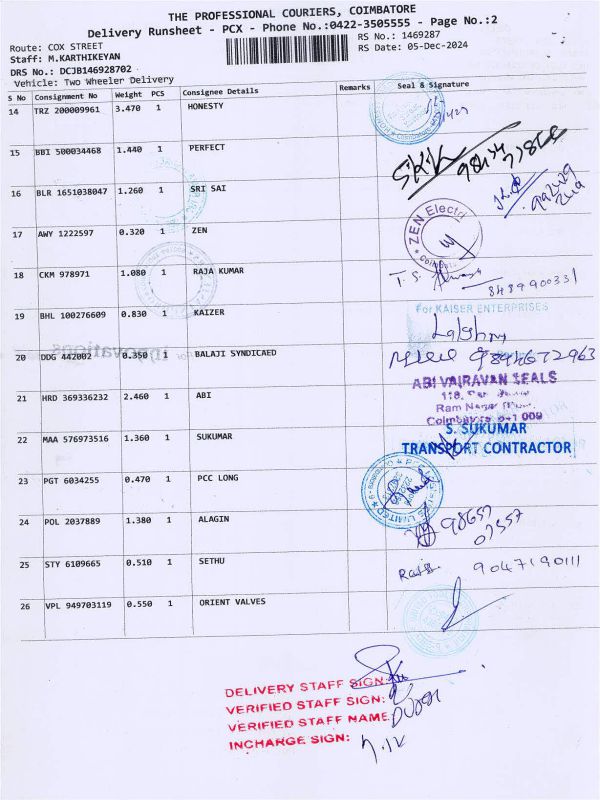 THE PROFESSIONAL COURIERS, COIMBATORE
Delivery Runsheet - PCX - Phone No.:0422-3505555 - Page No.:2
Route: COX STREET
RS No.: 1469287
Staff: M.KARTHIKEYAN
RS Date: 05-Dec-2024
DRS No.: DCJB146928702
Vehicle: Two Wheeler Delivery
S No Consignment No Weight PCS Consignee Details Remarks Seal & Signature
14 TRZ 200009961 3.470 1 HONESTY
15 BBI 500034468 1.440 1 PERFECT
16 BLR 1651038047 1.260 1 SRI SAI
17 AWY 1222597 0.320 1 ZEN
ZEN Electri
Coimbat
18 CKM 978971 1.080 1 RAJA KUMAR
8489900331
19 BHL 100276609 0.830 1 KAIZER
For KAISER ENTERPRISES
Lakshmy
20 DDG 442002 0.350 1 BALAJI SYNDICAED
9894672963
21 HRD 369336232 2.460 1 ABI
ABI VAIRAVAN SEALS
118,
Ram Nagar
Coimbatore 641 009
22 MAA 576973516 1.360 1 SUKUMAR
S. SUKUMAR
TRANSPORT CONTRACTOR
23 PGT 6034255 0.470 1 PCC LONG
LIMITED
24 POL 2037889 1.380 1 ALAGIN
98657
07357
25 STY 6109665 0.510 1 SETHU
9047190111
26 VPL 949703119 0.550 1 ORIENT VALVES
DELIVERY STAFF SIGN:
VERIFIED STAFF SIGN:
VERIFIED STAFF NAME:
INCHARGE SIGN: